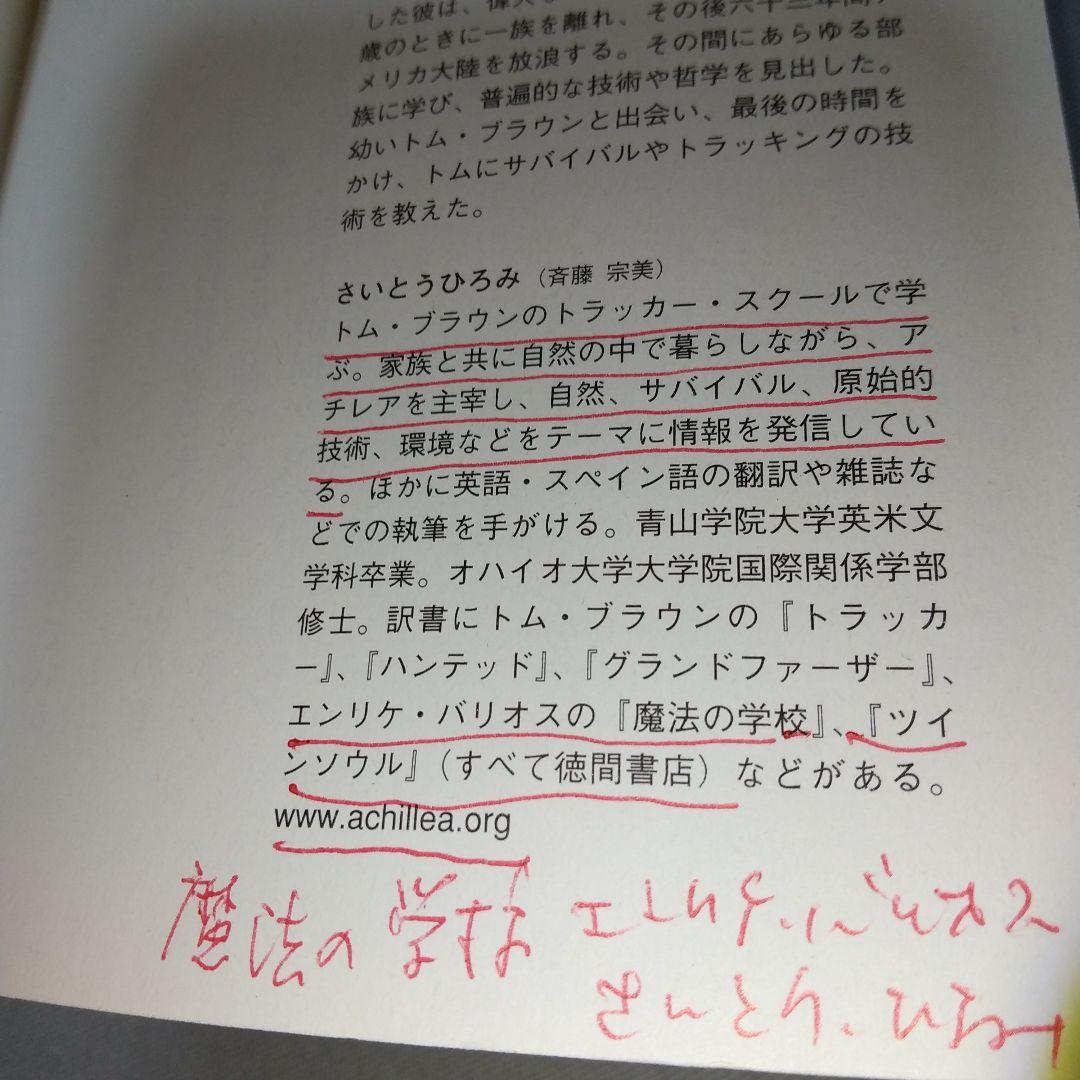 した彼は、偉大
歳のときに一族を離れ、その後六十三年間、
メリカ大陸を放浪する。その間にあらゆる部
族に学び、普遍的な技術や哲学を見出した。
幼いトム・ブラウンと出会い、最後の時間を
かけ、トムにサバイバルやトラッキングの技
術を教えた。
さいとうひろみ（斉藤 宗美）
トム・ブラウンのトラッカー・スクールで学
ぶ。家族と共に自然の中で暮らしながら、ア
チレアを主宰し、自然、サバイバル、原始的
技術、環境などをテーマに情報を発信してい
る。ほかに英語・スペイン語の翻訳や雑誌な
どでの執筆を手がける。青山学院大学英米文
学科卒業。オハイオ大学大学院国際関係学部
修士。訳書にトム・ブラウンの『トラッカ
ー』、『ハンテッド』、『グランドファーザー』、
エンリケ・バリオスの『魔法の学校』、『ツイ
ンソウル』（すべて徳間書店）などがある。
www.achillea.org
魔法の学校 エンリケ・バリオス
さいとう、ひろみ